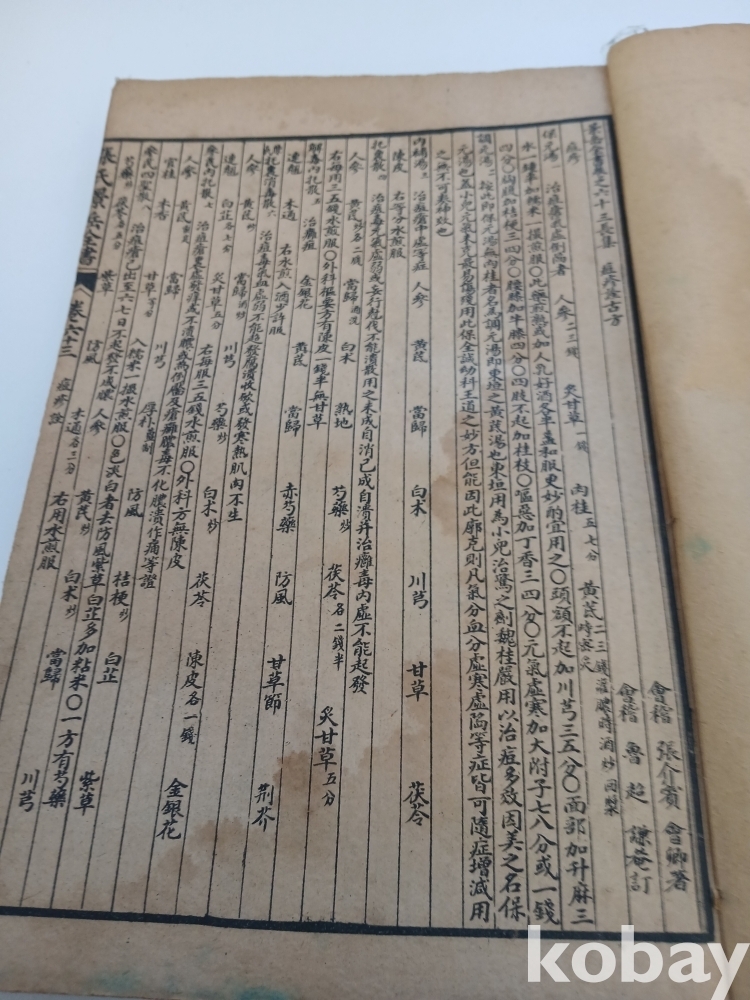 景岳全書卷之六十三長集 痘疹詮古方
會稽 張介賓 會卿著
會稽 魯超 謙菴訂
痘疹
保元湯一 治痘瘡氣虛倒陷者 人參二三錢 炙甘草一錢 肉桂五七分 黃芪二三錢灌膿時酒炒回漿時蜜炙
水一鍾半加糯米一撮煎服〇此藥煎熟加人乳好酒各半盞和服更妙酌宜用之〇頭額不起加川芎三五分〇面部加升麻三
四分〇胸腹加桔梗三四分〇腰膝加牛膝四分〇四肢不起加桂枝〇嘔惡加丁香三四分〇元氣虛寒加大附子七八分或一錢
調元湯二 按此即保元湯無肉桂者名為調元湯即東垣之黃芪湯也東垣用為小兒治驚之劑魏桂巖用以治痘多效因美之名保
元湯也蓋小兒元氣未充最易傷殘用此保全誠幼科王道之妙方但能因此廓充則凡氣分血分虛寒虛陷等症皆可隨症增減用
之無不可奏神效也
內補湯三 治痘瘡中虛等症 人參 黃芪 當歸 白术 川芎 甘草 茯苓
陳皮 右等分水煎服
托裏散四 治痘毒元氣虛弱或妄行尅伐不能潰散用之未成自消已成自潰并治癰毒內虛不能起發
人參 黃芪炒各二錢 當歸酒洗 白术 熟地 芍藥炒 茯苓各二錢半 炙甘草五分
右每用三五錢水煎服〇外科樞要方有陳皮一錢半無甘草
解毒內托散五 治癰疽 金銀花 黃芪 當歸 赤芍藥 防風 甘草節 荊芥
連翹 木通 右水煎入酒少許服
托裏消毒散六 治痘毒氣血虛弱不能起發腐潰收斂或發寒熱肌肉不生
人參 黃芪炒 當歸酒炒 川芎 芍藥炒 白术炒 茯苓 陳皮各一錢 金銀花
連翹 白芷各七分 炙甘草五分 右每服三五錢水煎服〇外科方無陳皮
參芪內托散七 治痘瘡裏虛發癢或不潰膿或為倒靨及瘡癰膿毒不化膿潰作痛等證
人參 黃芪蜜炙 當歸 川芎 厚朴薑制 防風 桔梗炒 白芷 紫草
官桂 木香 甘草等分 入糯米一撮水煎服〇色淡白者去防風紫草白芷多加粘米〇一方有芍藥
參芪四聖散八 治痘瘡已出至六七日不起發不成膿 人參 黃芪炒 白术炒 當歸 川芎
芍藥炒 茯苓各五分 紫草 防風 木通各三分 右用水煎服
張氏景岳全書
卷六十三 痘疹詮
kobay